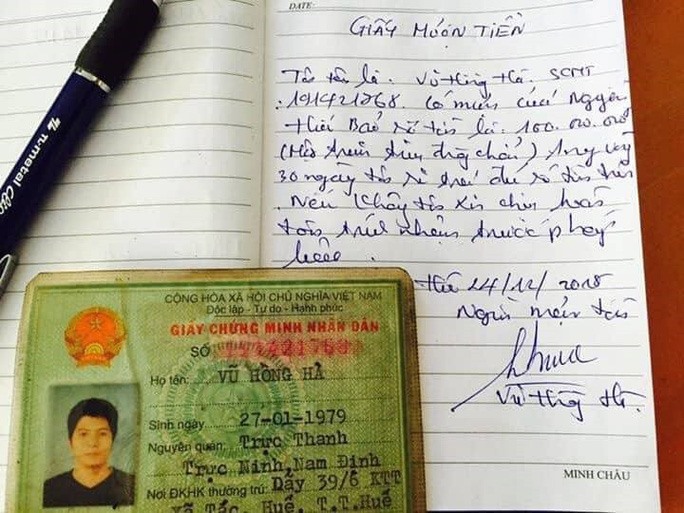 DATE:
GIẤY MƯỢN TIỀN
Tôi tên là. Vũ Hồng Hà. SCMT
191421768. Có mượn của Nguyễn
Thiế Bảo số tiền là. 100.000.000
(Một trăm triệu đồng chẵn) Trong vòng
30 ngày tôi sẽ trả đủ số tiền trên
. Nếu không tôi xin chịu hoàn
toàn trách nhiệm trước pháp
luật
Huế 24/12/2018
Người mượn tiền
Vũ Hồng Hà.
MINH CHÂU
n-metal
CỘNG HÒA XÃ HỘI CHỦ NGHĨA VIỆT NAM
Độc lập - Tự do - Hạnh phúc
GIẤY CHỨNG MINH NHÂN DÂN
SỐ 191421768
Họ tên: VŨ HỒNG HÀ
Sinh ngày 27-01-1979
Nguyên quán: Trực Thanh
Trực Ninh, Nam Định
Nơi ĐKHK thường trú: Dãy 39/6 KTT
Xã Tắc, Huế, T.T.Huế